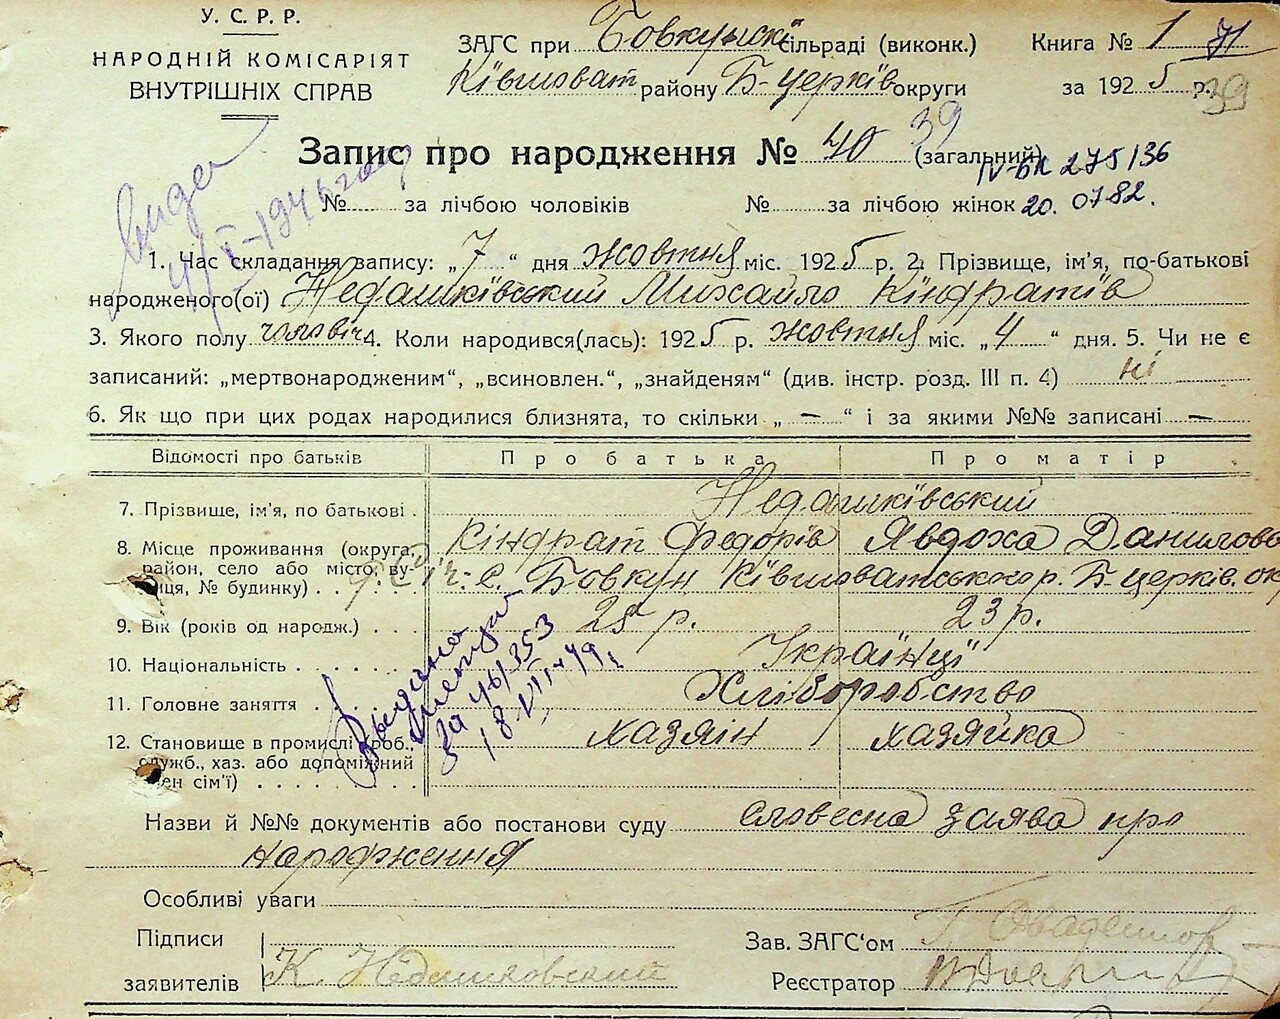 У. С. Р. Р.
НАРОДНІЙ КОМІСАРІЯТ
ВНУТРІШНІХ СПРАВ
ЗАГС при Бовкунськ сільраді (виконк.) Книга № 1 71
Ківшоват району Б-церків округи за 1925 р. 39
Запис про народження № 40 39 (загальний)
IV-БК 275136
№ за лічбою чоловіків № за лічбою жінок 20.07.82.
1. Час складання запису: „7“ дня жовтня міс. 1925 р. 2. Прізвище, ім'я, по-батькові
народженого(ої) Недашківський Михайло Кіндратів
3. Якого полу чоловіч 4. Коли народився(лась): 1925 р. жовтня міс. „4“ дня. 5. Чи не є
записаний: „мертвонародженим“, „всиновлен.“, „знайденям“ (див. інстр. розд. III п. 4) ні
6. Як що при цих родах народилися близнята, то скільки „—“ і за якими №№ записані —
Відомості про батьків Про батька Про матір
7. Прізвище, ім'я, по батькові . Недашківський
Кіндрат Федорів Явдоха Данилова
8. Місце проживання (округа, район, село або місто, вулиця, № будинку) . . с. Бовкун Ківшоватського р. Б-церків. ок
9. Вік (років од народж.) . . . 25 р. 23 р.
10. Національність . . . . . . Українці
11. Головне заняття . . . . . Хліборобство
12. Становище в промислі (роб., служб., хаз. або допоміжний член сім'ї) . . . . . . . . хазяін хазяйка
Назви й №№ документів або постанови суду словесна заява про
народження
Особливі уваги
Підписи
заявителів К. Недашковский
Зав. ЗАГС'ом
Реєстратор